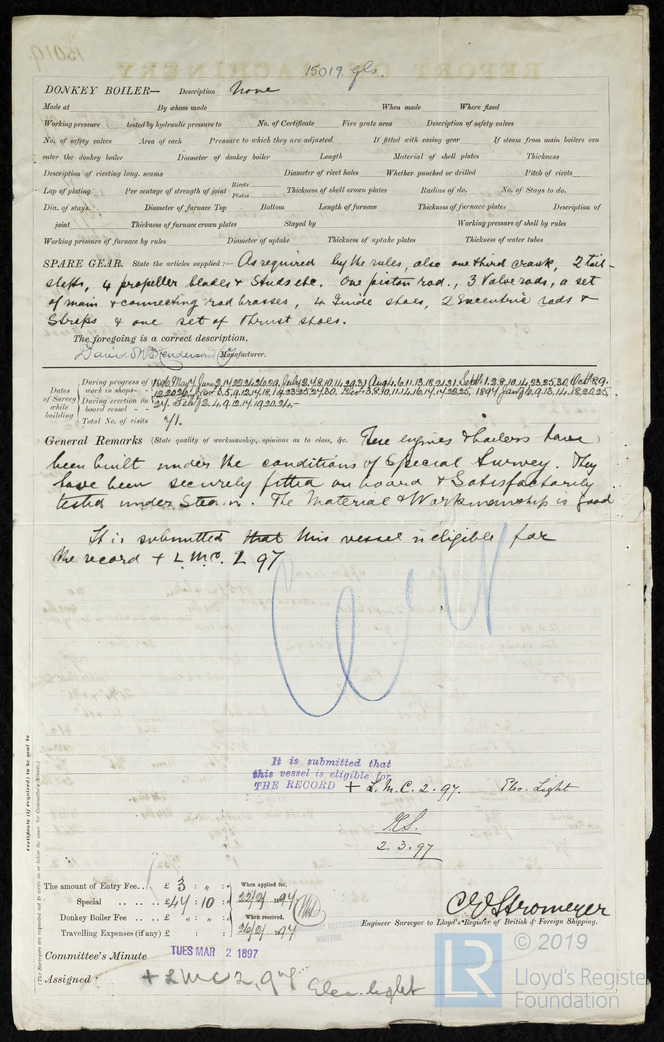 15019 gls
DONKEY BOILER— Description None
Made at By whom made When made Where fixed
Working pressure tested by hydraulic pressure to No. of Certificate Fire grate area Description of safety valves
No. of safety valves Area of each Pressure to which they are adjusted If fitted with easing gear If steam from main boilers can
enter the donkey boiler Diameter of donkey boiler Length Material of shell plates Thickness
Description of riveting long. seams Diameter of rivet holes Whether punched or drilled Pitch of rivets
Lap of plating Per centage of strength of joint Rivets Plates Thickness of shell crown plates Radius of do. No. of Stays to do.
Dia. of stays. Diameter of furnace Top Bottom Length of furnace Thickness of furnace plates Description of
joint Thickness of furnace crown plates Stayed by Working pressure of shell by rules
Working pressure of furnace by rules Diameter of uptake Thickness of uptake plates Thickness of water tubes
SPARE GEAR. State the articles supplied:— As required by the rules, also one third crank, 2 tail-
shfts, 4 propeller blades & Studs etc. One piston rod., 3 Valve rods, a set
of main & connecting rod brasses, 4 Guide shoes, 2 Eccentric rods &
Straps & one set of Thrust shoes.
The foregoing is a correct description,
David & W. Henderson & Co Manufacturer.
Dates of Survey while building
During progress of work in shops--
During erection on board vessel---
Total No. of visits 71.
General Remarks (State quality of workmanship, opinions as to class, &c. These engines & boilers have
been built under the conditions of Special Survey. They
have been securely fitted on board & Satisfactorily
tested under Steam. The Material & Workmanship is good
It is submitted that this vessel is eligible for
the record + L.M.C. 2 97
It is submitted that
this vessel is eligible for
THE RECORD + L.M.C. 2.97. Elec. Light
2.3.97
Certificate (if required) to be sent to
(The Surveyors are requested not to write on or below the space for Committee's Minute.)
The amount of Entry Fee.. £ 3 : " : When applied for,
Special .. .. .. £ 47 : 10 : 22/2/1897
Donkey Boiler Fee .. .. £ " : " : When received,
Travelling Expenses (if any) £ : : 26/2/1897
C E Stromeyer
Engineer Surveyor to Lloyd's Register of British & Foreign Shipping.
Committee's Minute TUES MAR 2 1897
Assigned + LMC 2,97 Elec. light
© 2019
LR
Lloyd's Register
Foundation